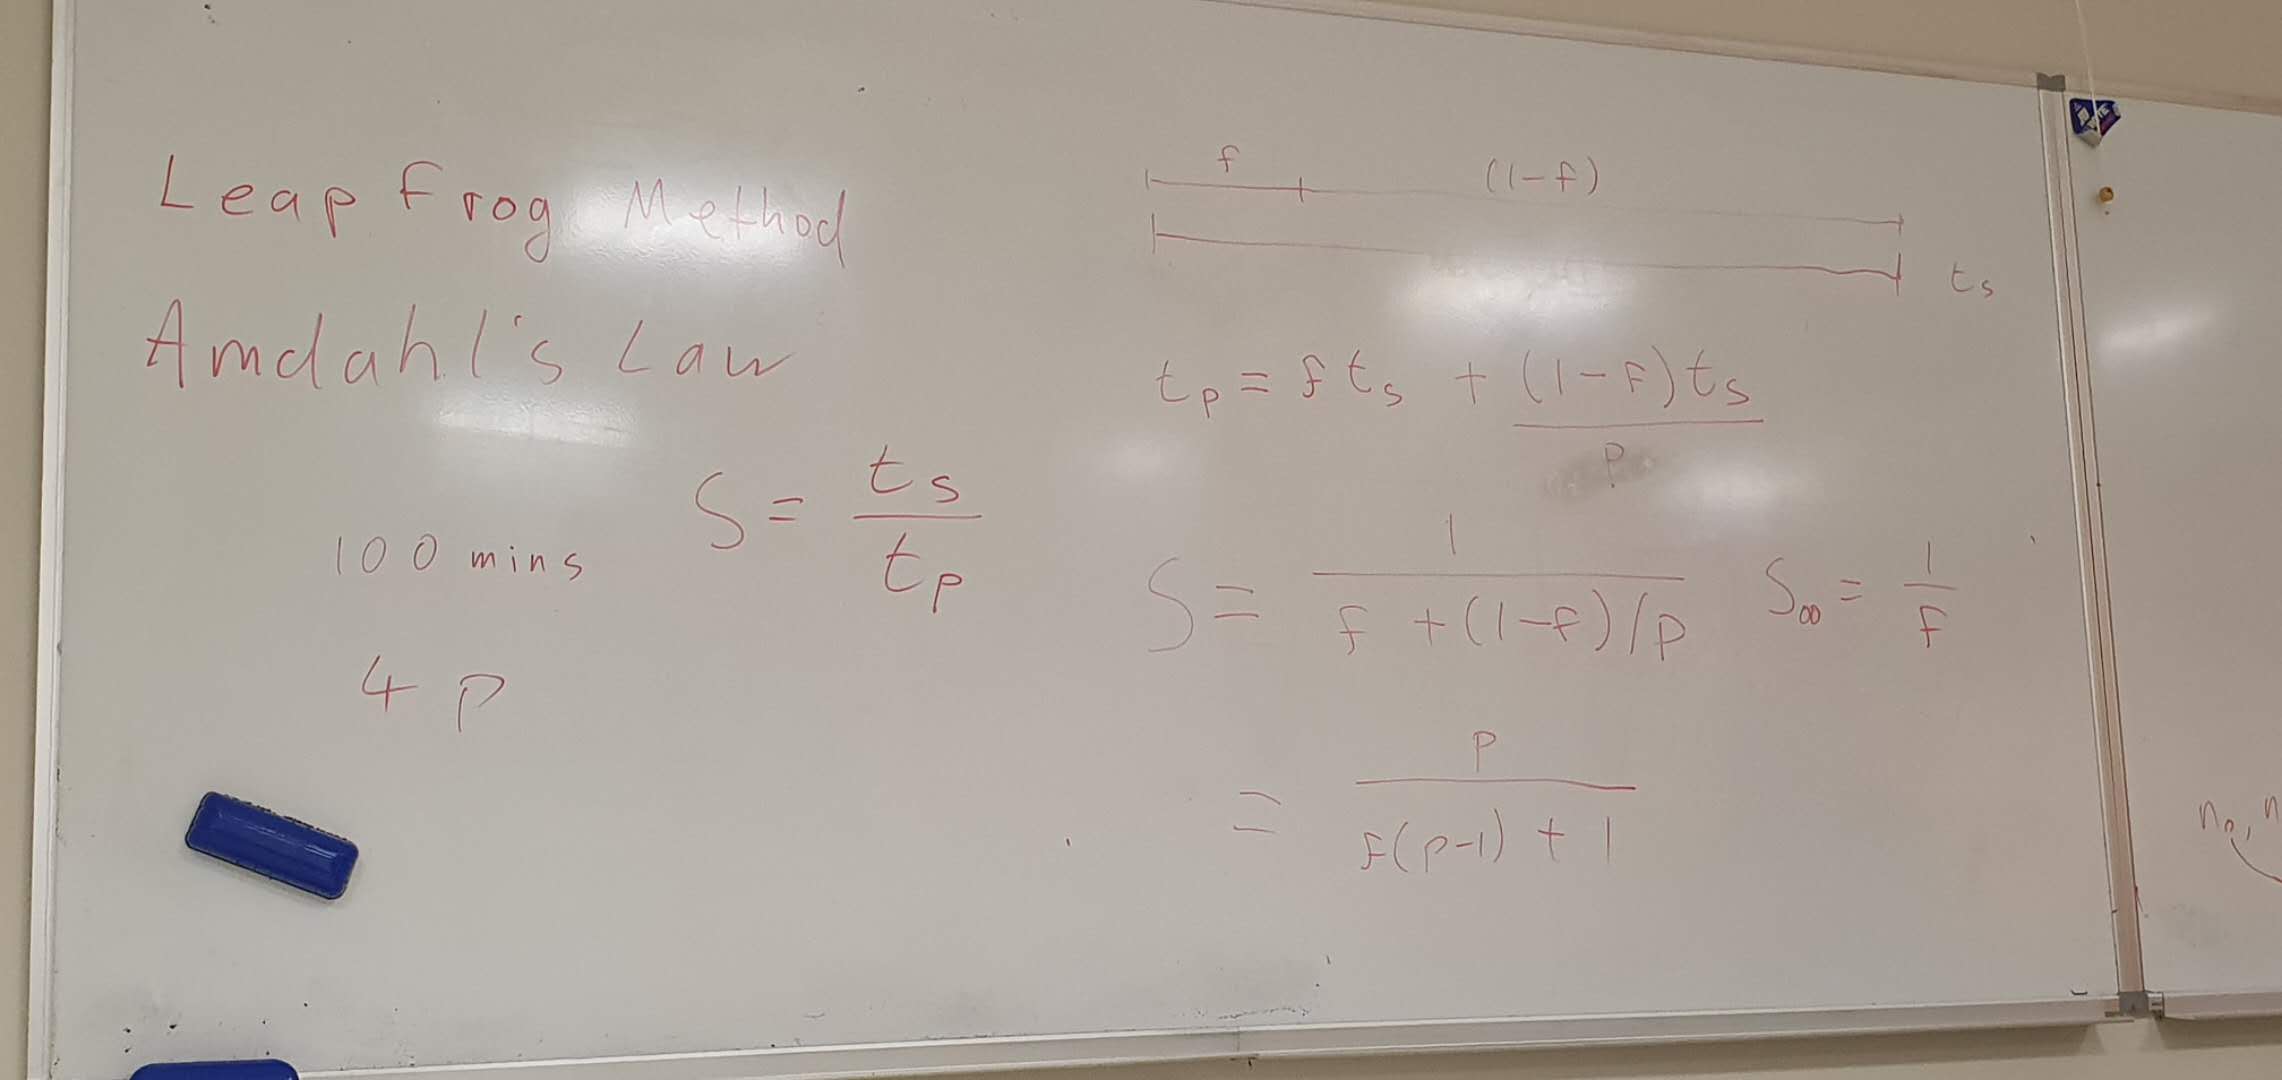 Leap frog Method
Amdahl's Law
100 mins
4 p
S = ts / tp
f (1-f)
ts
tp = f ts + (1-f)ts / p
S = 1 / f + (1-f)/p S∞ = 1 / f
= p / f(p-1) + 1